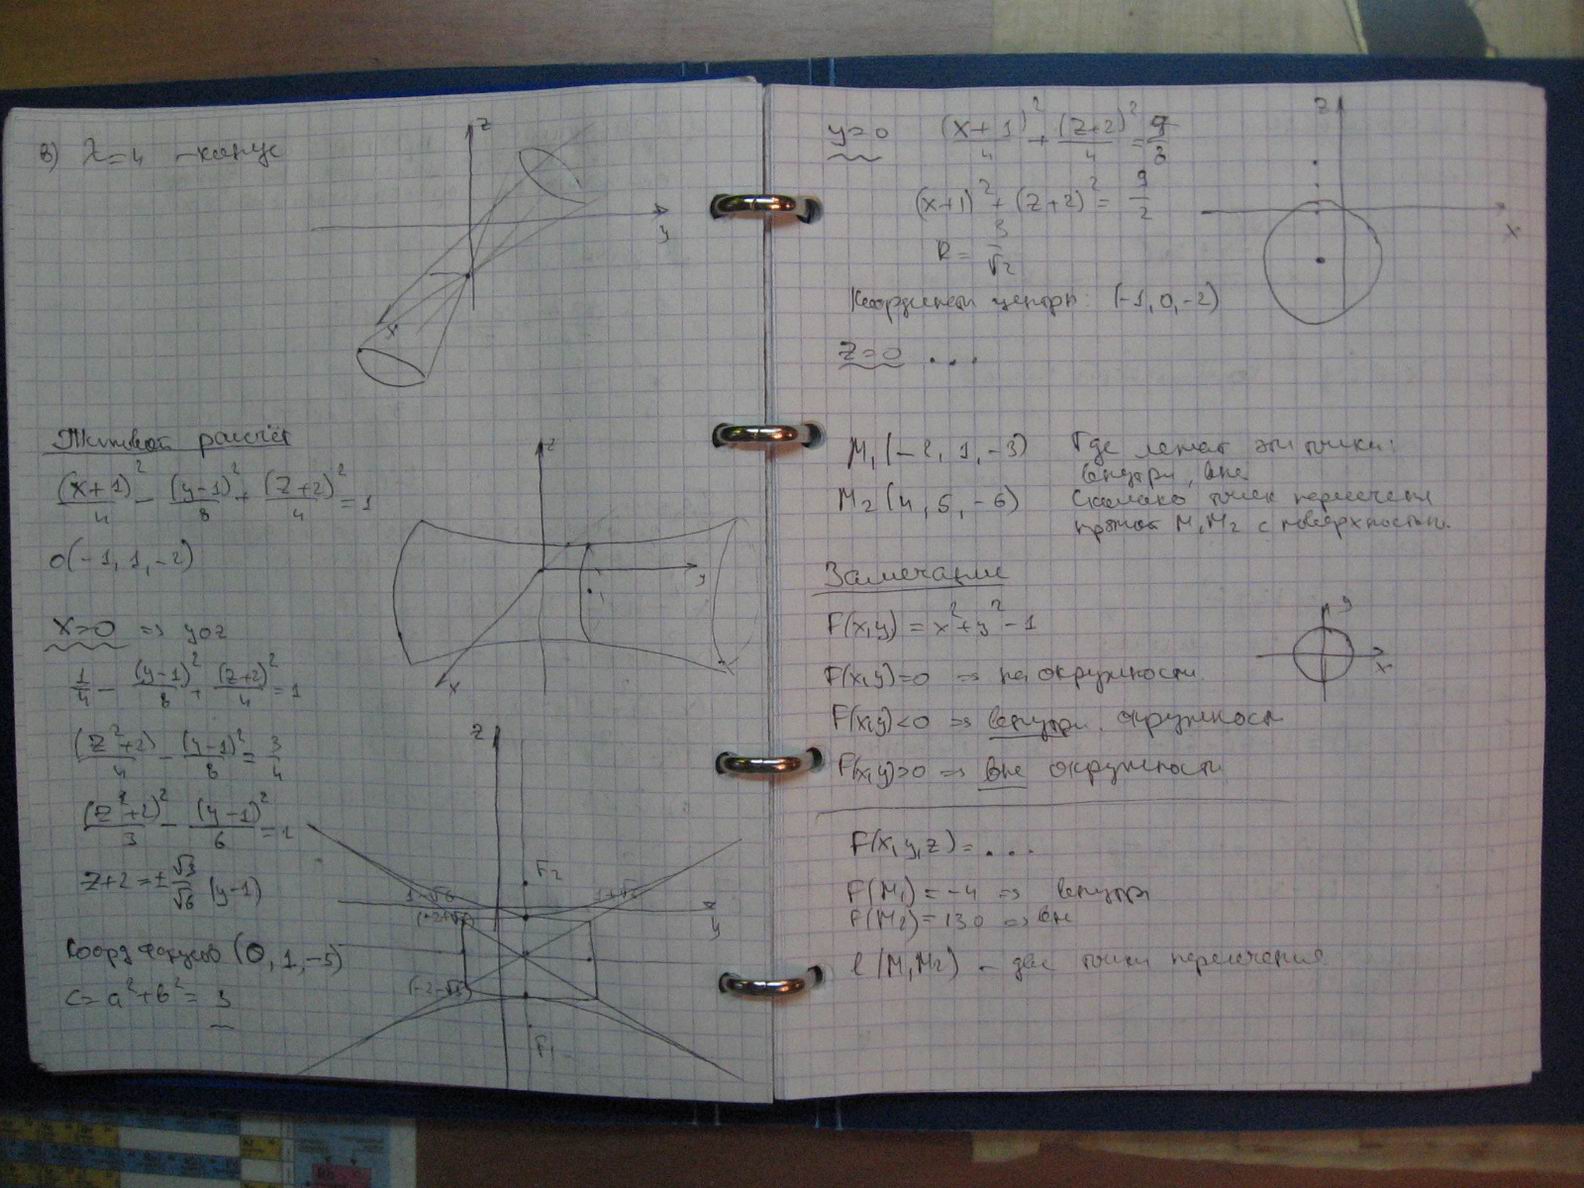 в) λ=4 - конус
z
y
x
Типовой расчёт
(x+1)²/4 - (y-1)²/8 + (z+2)²/4 = 1
O(-1, 1, -2)
z
y
x
x=0 => yoz
1/4 - (y-1)²/8 + (z+2)²/4 = 1
(z²+2)/4 - (y-1)²/8 = 3/4
(z²+2)²/3 - (y-1)²/6 = 1
z+2 = ± √3/√6 (y-1)
Коорд фокусов (0, 1, -5)
c = a²+b² = 3
z
F₂
1-√6
1+√6
(-2+√3)
y
(-2-√3)
F₁
y=0 (x+1)²/4 + (z+2)²/4 = 9/8
(x+1)² + (z+2)² = 9/2
R = 3/√2
Координаты центра: (-1, 0, -2)
z
x
z=0 ...
M₁(-2, 1, -3) Где лежат эти точки:
внутри, вне
M₂(4, 5, -6) Сколько точек пересечен
прямой M₁M₂ с поверхностью.
Замечание
F(x,y) = x²+y²-1
y
x
F(x,y)=0 => на окружности
F(x,y)<0 => внутри окружности
F(x,y)>0 => вне окружности
F(x,y,z) = ...
F(M₁) = -4 => внутри
F(M₂) = 130 => вне
l(M₁M₂) - две точки пересечения